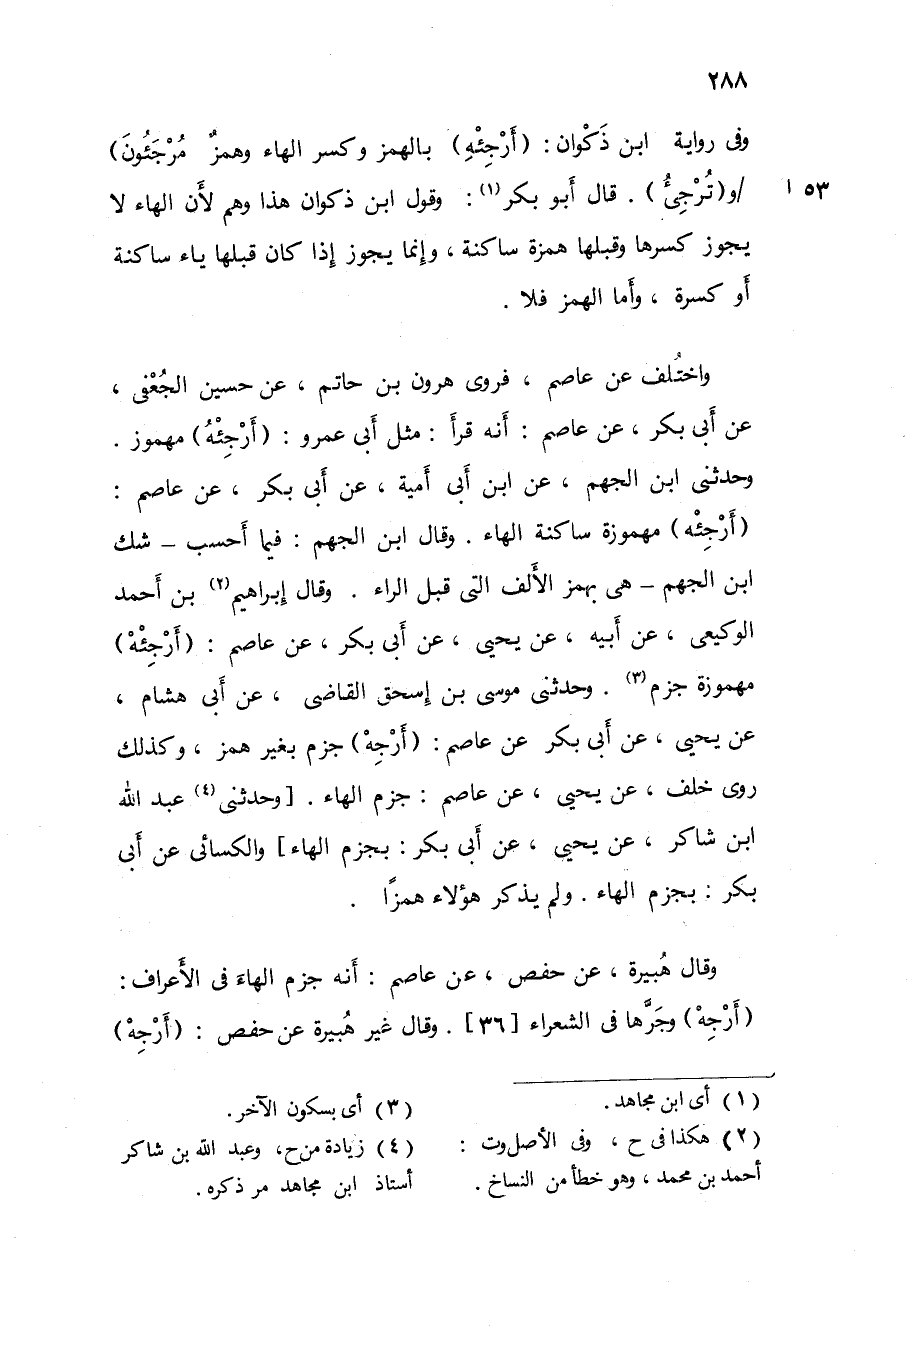 ٢٨٨
وفى رواية ابن ذَكْوان : (أَرْجِئْهِ) بالهمز وكسر الهاء وهمزٌ مُرْجَئُونَ)
٥٣ ا /و(تُرْجِئُ) . قال أَبو بكر(١) : وقول ابن ذكوان هذا وهم لأَن الهاء لا
يجوز كسرها وقبلها همزة ساكنة ، وإنما يجوز إذا كان قبلها ياء ساكنة
أَو كسرة ، وأَما الهمز فلا .
واختُلف عن عاصم ، فروى هرون بن حاتم ، عن حسين الجُعْفى ،
عن أَبى بكر ، عن عاصم : أَنه قرأَ : مثل أَبى عمرو : (أَرْجِئْهُ) مهموز .
وحدثنى ابن الجهم ، عن ابن أَبى أُمية ، عن أَبى بكر ، عن عاصم :
(أَرْجِئْه) مهموزة ساكنة الهاء . وقال ابن الجهم : فيما أَحسب – شك
ابن الجهم – هى بهمز الأَلف التى قبل الراء . وقال إبراهيم(٢) بن أَحمد
الوكيعى ، عن أَبيه ، عن يحيى ، عن أَبى بكر ، عن عاصم : (أَرْجِئْهْ)
مهموزة جزم(٣) . وحدثنى موسى بن إسحق القاضى ، عن أَبى هشام ،
عن يحيى ، عن أَبى بكر عن عاصم : (أَرْجِهْ) جزم بغير همز ، وكذلك
روى خلف ، عن يحيى ، عن عاصم : جزم الهاء . [وحدثنى(٤) عبد الله
ابن شاكر ، عن يحيى ، عن أَبى بكر : بجزم الهاء] والكسائى عن أَبى
بكر : بجزم الهاء . ولم يذكر هؤلاء همزًا .
وقال هُبيرة ، عن حفص ، عن عاصم : أَنه جزم الهاءَ فى الأَعراف :
(أَرْجِهْ) وجَرَّها فى الشعراء [٣٦] . وقال غير هُبيرة عن حفص : (أَرْجِهْ)
(١) أى ابن مجاهد .
(٢) هكذا فى ح ، وفى الأصل وت :
أحمد بن محمد ، وهو خطأ من النساخ .
(٣) أى بسكون الآخر .
(٤) زيادة من ح، وعبد الله بن شاكر
أستاذ ابن مجاهد مر ذكره .